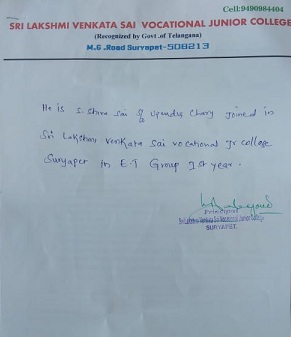 Cell:9490984404
SRI LAKSHMI VENKATA SAI VOCATIONAL JUNIOR COLLEGE
(Recognized by Govt .of Telangana)
M.G .Road Suryapet-508213
He is S. Shiva Sai S/o Upendra Chary Joined in
Sri Lakshmi Venkata Sai vocational Jr college
Suryapet in ET Group 1st year.
Principal
Sri Lakshmi Venkata Sai Vocational Junior College
SURYAPET.